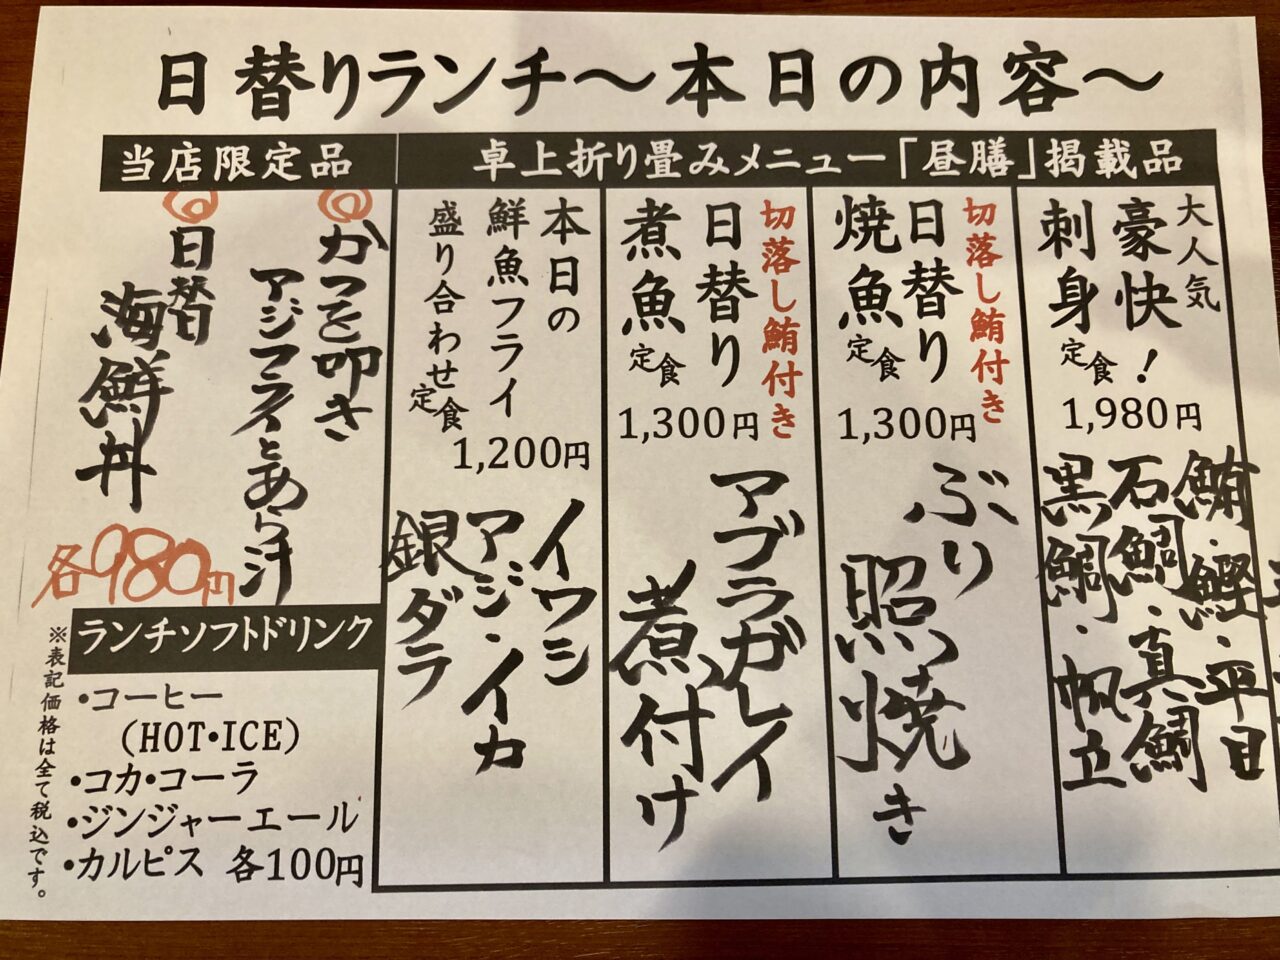 日替りランチ〜本日の内容〜
卓上折り畳みメニュー「昼膳」掲載品
大人気
豪快!
刺身定食
1,980円
鮪・鰹・平目
石鯛・真鯛
黒鯛・帆立
切落し鮪付き
日替り
焼魚定食
1,300円
ぶり
照焼き
切落し鮪付き
日替り
煮魚定食
1,300円
アブラガレイ
煮付け
本日の
鮮魚フライ
盛り合わせ定食
1,200円
イワシ
アジ・イカ
銀ダラ
当店限定品
◎かつを叩き
アジフライとあら汁
◎日替
海鮮丼
各980円
ランチソフトドリンク
・コーヒー
(HOT・ICE)
・コカ・コーラ
・ジンジャーエール
・カルピス 各100円
※表記価格は全て税込です。